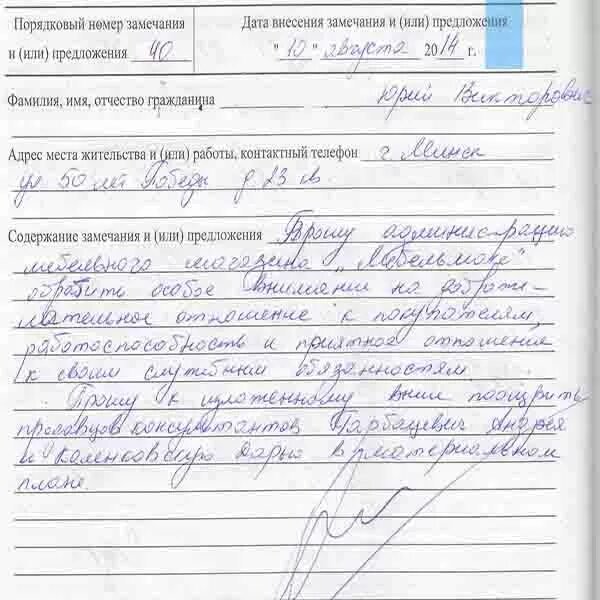 Порядковый номер замечания
и (или) предложения 40
Дата внесения замечания и (или) предложения
"10" августа 2014 г.
Фамилия, имя, отчество гражданина Юрий Викторович
Адрес места жительства и (или) работы, контактный телефон г. Минск
ул 50 лет Победы д. 23 кв.
Содержание замечания и (или) предложения Прошу администрацию
мебельного магазина "Мебельмакс"
обратить особое внимании на доброже-
лательное отношение к покупателям,
работоспособность и приятное отношение
к своим служебным обязанностям.
Прошу к изложенному выше поощрить
продавцов консультантов Барбацевич Андрея
и Каленковскую Дарью в материальном
плане.